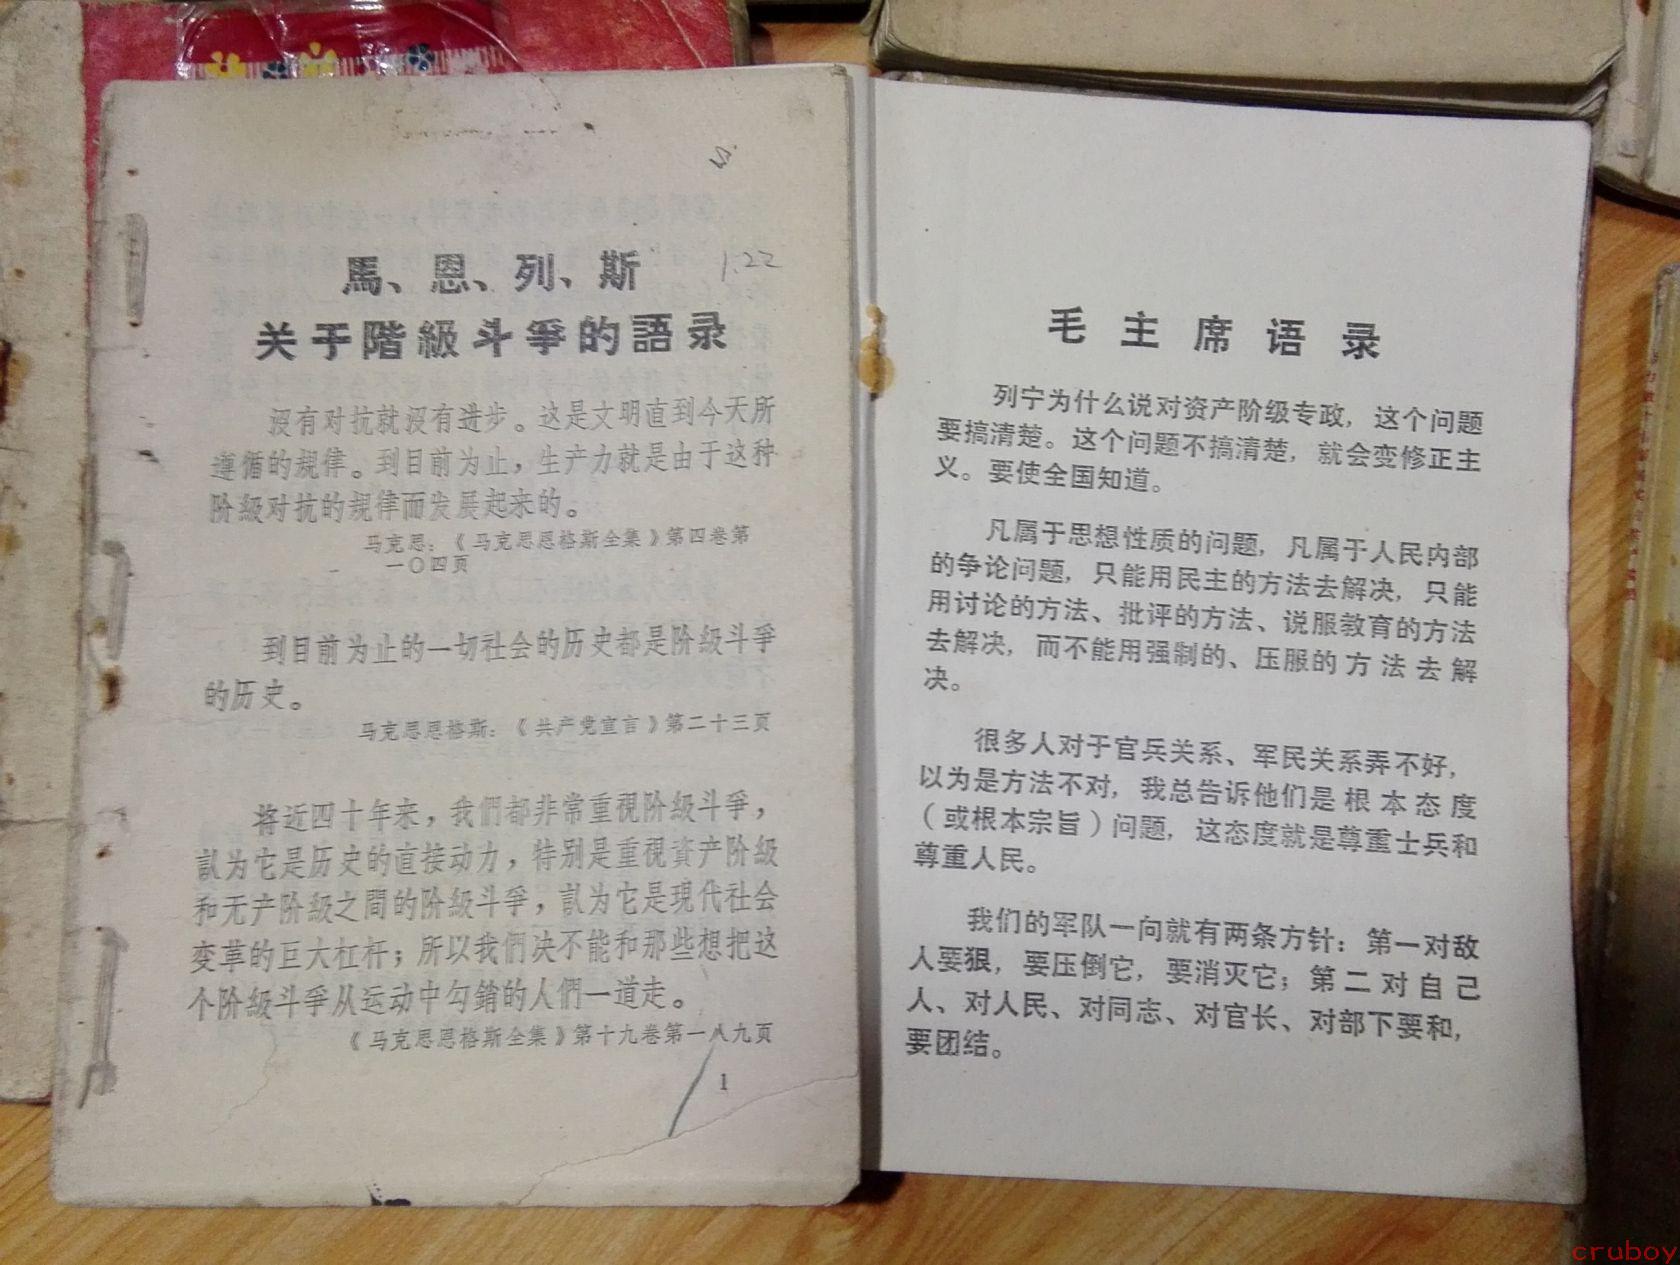 1.22
馬、恩、列、斯
关于階級斗爭的語录
沒有对抗就沒有进步。这是文明直到今天所
遵循的規律。到目前为止，生产力就是由于这种
阶級对抗的規律而发展起来的。
马克思：《马克思恩格斯全集》第四卷第
一〇四页
到目前为止的一切社会的历史都是阶級斗爭
的历史。
马克思恩格斯：《共产党宣言》第二十三页
将近四十年来，我們都非常重視阶級斗爭，
訓为它是历史的直接动力，特别是重視資产阶級
和无产阶級之間的阶級斗爭，訓为它是現代社会
变革的巨大杠杆；所以我們决不能和那些想把这
个阶級斗爭从运动中勾銷的人們一道走。
《马克思恩格斯全集》第十九卷第一八九页
1
毛主席语录
列宁为什么说对资产阶级专政，这个问题
要搞清楚。这个问题不搞清楚，就会变修正主
义。要使全国知道。
凡属于思想性质的问题，凡属于人民内部
的争论问题，只能用民主的方法去解决，只能
用讨论的方法、批评的方法、说服教育的方法
去解决，而不能用强制的、压服的方法去解
决。
很多人对于官兵关系、军民关系弄不好，
以为是方法不对，我总告诉他们是根本态度
（或根本宗旨）问题，这态度就是尊重士兵和
尊重人民。
我们的军队一向就有两条方针：第一对敌
人要狠，要压倒它，要消灭它；第二对自己
人、对人民、对同志、对官长、对部下要和，
要团结。
cruboy